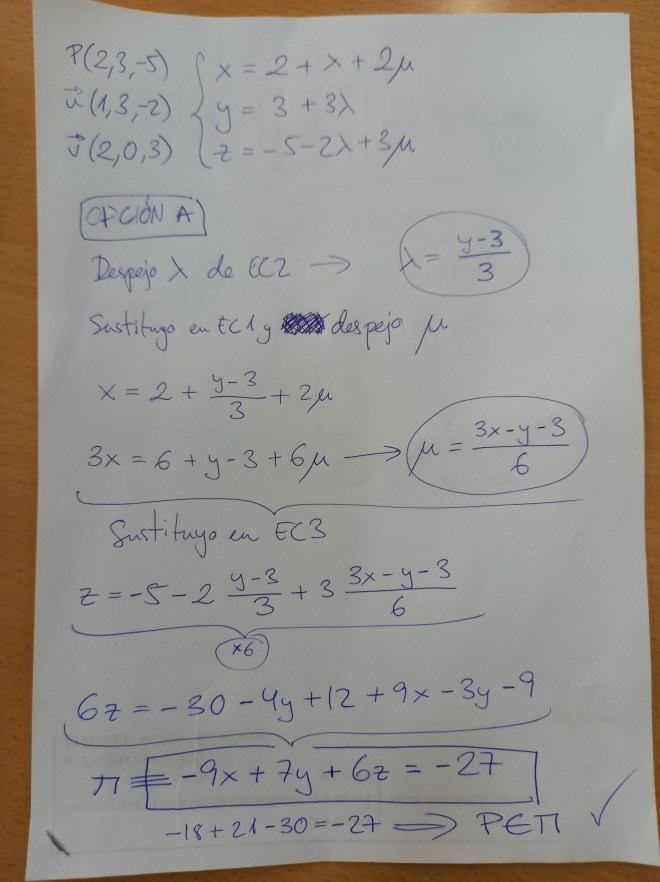 P(2,3,-5) { x = 2 + λ + 2μ
u⃗(1,3,-2) y = 3 + 3λ
v⃗(2,0,3) z = -5 - 2λ + 3μ
OPCIÓN A
Despejo λ de EC2 → λ = (y-3)/3
Sustituyo en EC1 y despejo μ
x = 2 + (y-3)/3 + 2μ
3x = 6 + y - 3 + 6μ → μ = (3x-y-3)/6
Sustituyo en EC3
z = -5 - 2 (y-3)/3 + 3 (3x-y-3)/6
×6
6z = -30 - 4y + 12 + 9x - 3y - 9
π ≡ -9x + 7y + 6z = -27
-18 + 21 - 30 = -27 ⟹ P∈π ✓